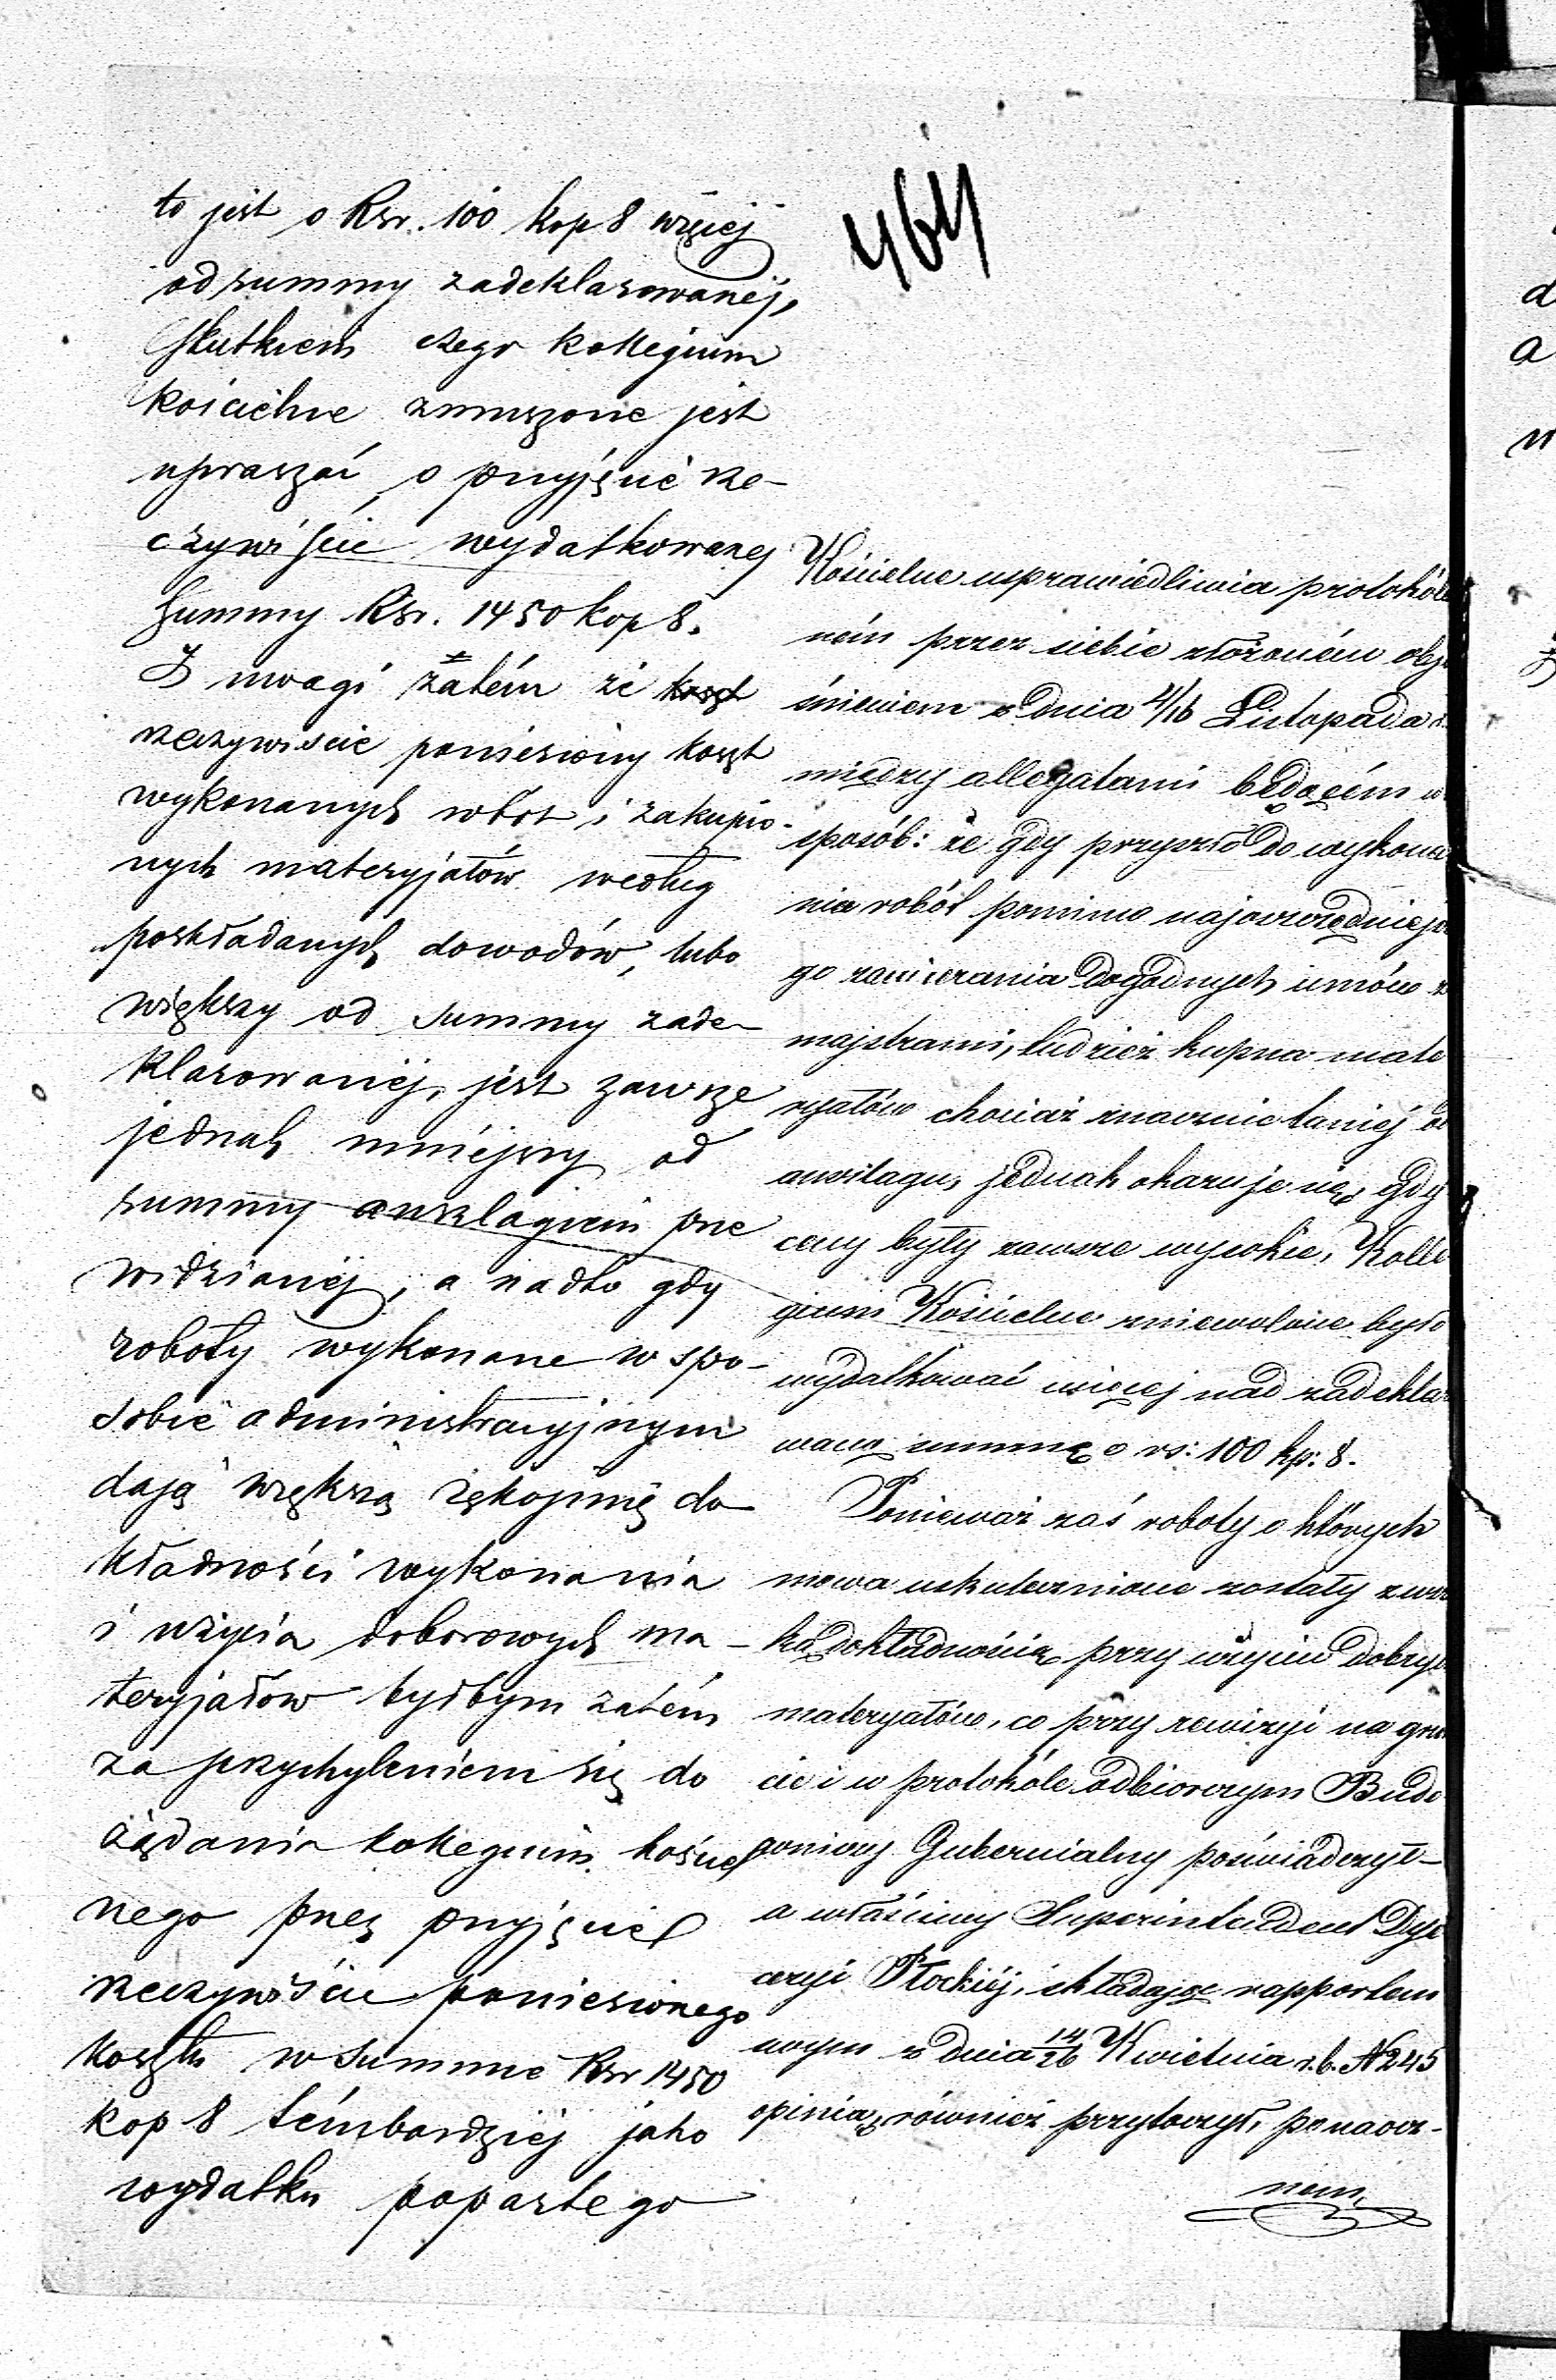 464
to jest o Rsr. 100 kop 8 więcej
od summy zadeklarowanéj,
skutkiem czego kollegium
kościelne zmuszone jest
upraszać o przyjęcie rze-
czywiście wydatkowanej
summy Rsr. 1450 kop 8.
Z uwagi zatém że
rzeczywiście poniesiony koszt
wykonanych robót i zakupio-
nych materyjałów według
poskładanych dowodów, lubo
większy od summy zade-
klarowanéj, jest zawsze
jednak mniejszy od
summy anszlagiem prze
widzianéj, a nadto gdy
roboty wykonane w spo-
sobie administracyjnym
dają większą rękojmię do
kładności wykonania
i użycia doborowych ma-
teryjałów byłbym zatém
za przychyleniem się do
żądania kollegium kościel
nego przez przyjęcie
rzeczywiście poniesionego
kosztu w summie Rsr 1450
kop 8 témbardziéj jako
wydatku popartego
Kościelne usprawiedliwia protokóle
ném przez siebie złożoném obja
śnieniem z dnia 4/16 Listopada r.
między allegatami będącém w
sposób: że gdy przyszło do wykona
nia robót pomimo najoszczędniejsze
go zawierania dogodnych umów z
majstrami, tudzież kupna mate
ryałów chociaż znacznie taniej od
anszlagu, jednak okazuje się, gdy
ceny były zawsze wysokie, Kolle
gium Kościelne zniewolone było
wydatkować więcej nad zadekla
waną summę o rs: 100 kp: 8.
Ponieważ zaś roboty o których
mowa uskutecznione zostały z wsz
ką dokładnością przy użyciu dobrych
materyałów, co przy rewizyi na grun
cie i w protokóle odbiorczym Budo
wniczy Gubernialny poświadczył-
a właściwy Superintendent Dye
cezyi Płockiéj, składając rapportem
swym z dnia 14/26 Kwietnia r.b. N 245
opinią, również przytoczył, po naocz-
nem,